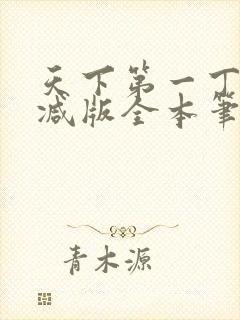 天下第一丁
减版全本筆
青木源